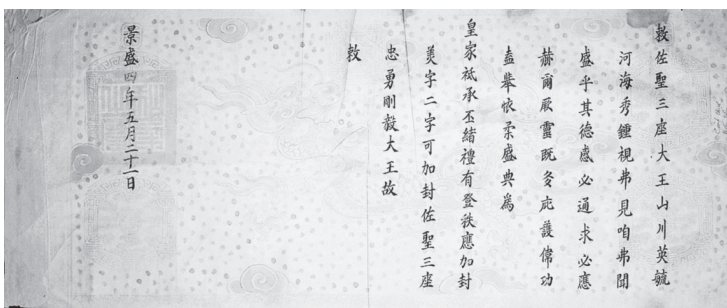 敕佐聖三座大王山川英毓
河海秀鍾視弗見咱弗聞
盛乎其德感必通求必應
赫爾厥靈既多庇護偉功
盍舉懷柔盛典為
皇家祇承丕緒禮有登秩應加封
美字二字可加封佐聖三座
忠勇剛毅大王故
敕
景盛四年五月二十一日